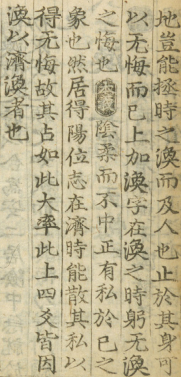 地豈能拯時之渙而及人也止於其身可
以无悔而已上加渙字在渙之時躬无渙
之悔也本義陰柔而不中正有私於己之
象也然居得陽位志在濟時能散其私以
得无悔故其占如此大率此上四爻皆因
渙以濟渙者也